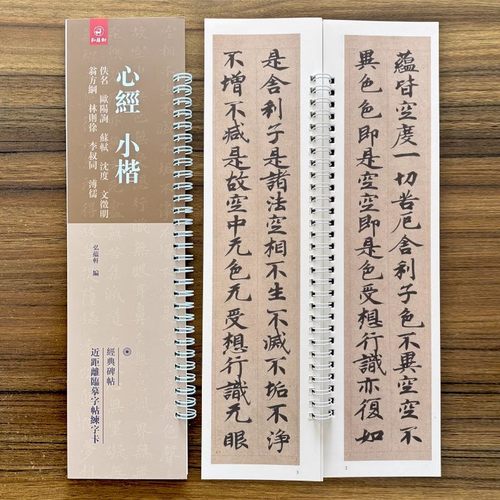 心經 小楷
佚名 歐陽詢 蘇軾 沈度 文徵明
翁方綱 林則徐 李叔同 溥儒
弘蘊軒 編
經典碑帖
近距離臨摹字帖練字卡
蘊皆空度一切苦厄舍利子色不異空空不
異色色即是空空即是色受想行識亦復如
是舍利子是諸法空相不生不滅不垢不淨
不增不減是故空中无色无受想行識无眼